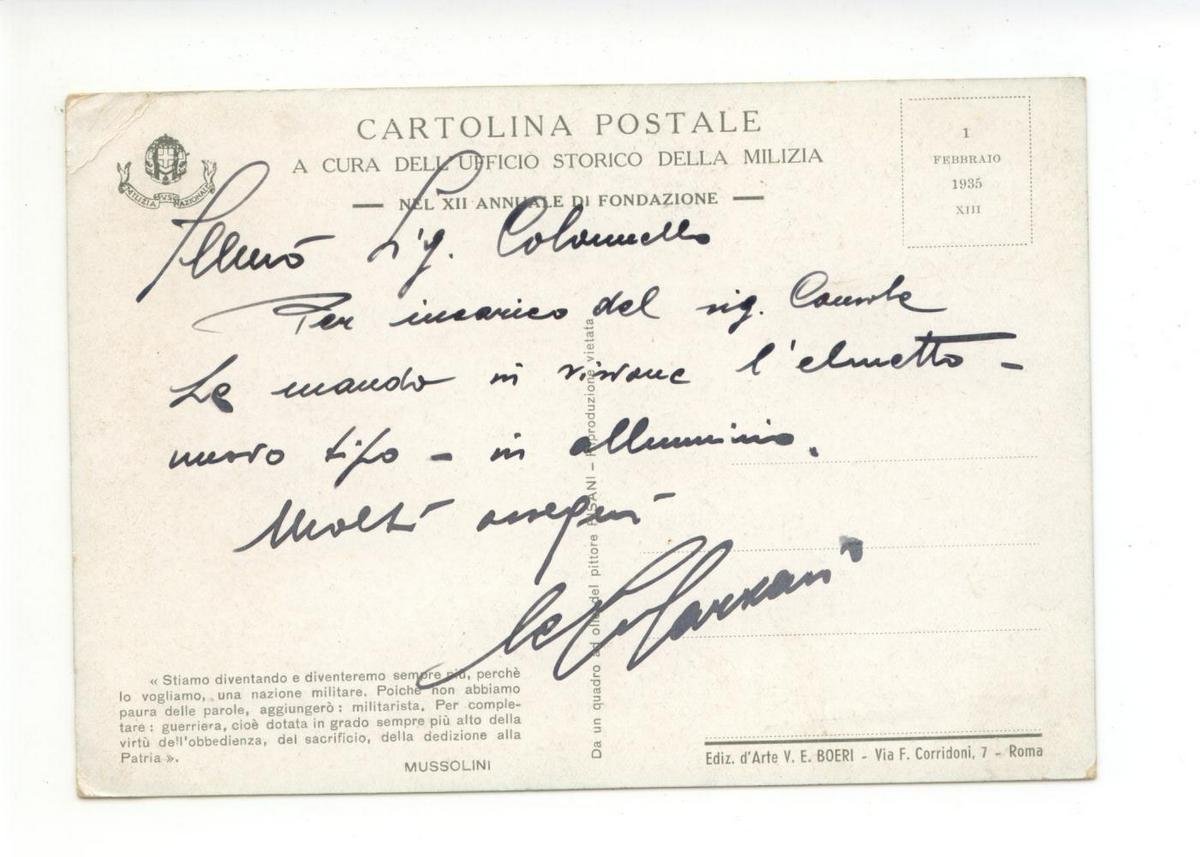 CARTOLINA POSTALE
A CURA DELL'UFFICIO STORICO DELLA MILIZIA
NEL XII ANNUALE DI FONDAZIONE
1
FEBBRAIO
1935
XIII
MILIZIA V.S. NAZIONALE
Illmo Sig. Colonnello
Per incarico del sig. Console
Le mando in visione l'elmetto -
nuovo tipo - in alluminio.
Molti ossequi
Marzani
Da un quadro ad olio del pittore PISANI - Riproduzione vietata
« Stiamo diventando e diventeremo sempre più, perchè
lo vogliamo, una nazione militare. Poichè non abbiamo
paura delle parole, aggiungerò : militarista. Per comple-
tare : guerriera, cioè dotata in grado sempre più alto della
virtù dell'obbedienza, del sacrificio, della dedizione alla
Patria ».
MUSSOLINI
Ediz. d'Arte V. E. BOERI - Via F. Corridoni, 7 - Roma